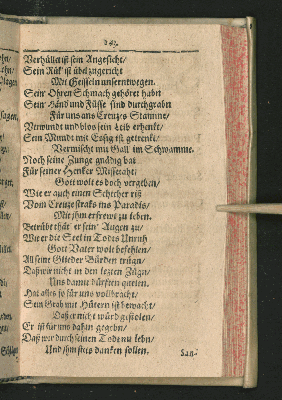 Verhüllet ist sein Angesicht/
Sein Rük' ist übel zugericht
Mit Geisseln unsertwegen.
Sein' Ohren Schmach gehöret habn
Sein' Händ und Füsse sind durchgrabn
Für uns ans Creutzes Stamme/
Verwundt und blos sein Leib erhenkt/
Sein Mundt mit Essig ist getrenkt/
Vermischt mit Gall im Schwamme.
Noch seine Zunge gnädig bat
Für seiner Henker Missethat/
Gott wolt es doch vergeben/
Wie er auch einen Schecher riß
Vom Creutze straks ins Paradis/
Mit ihm erfrewt zu leben.
Betrübt thät er sein' Augen zu/
Wie er die Seel in Todts Unruh
Gott Vater wolt befehlen/
All seine Glieder Bürden trugn/
Daß wir nicht in den letzten Zügn/
Uns damit dürften quelen.
Hat alles so für uns vollbracht/
Sein Grab mit Hütern ist bewacht/
Daß er nicht würd gestolen/
Er ist für uns dahin gegebn/
Daß wir durch seinen Tode nu lebn/
Und ihm stets danken sollen.